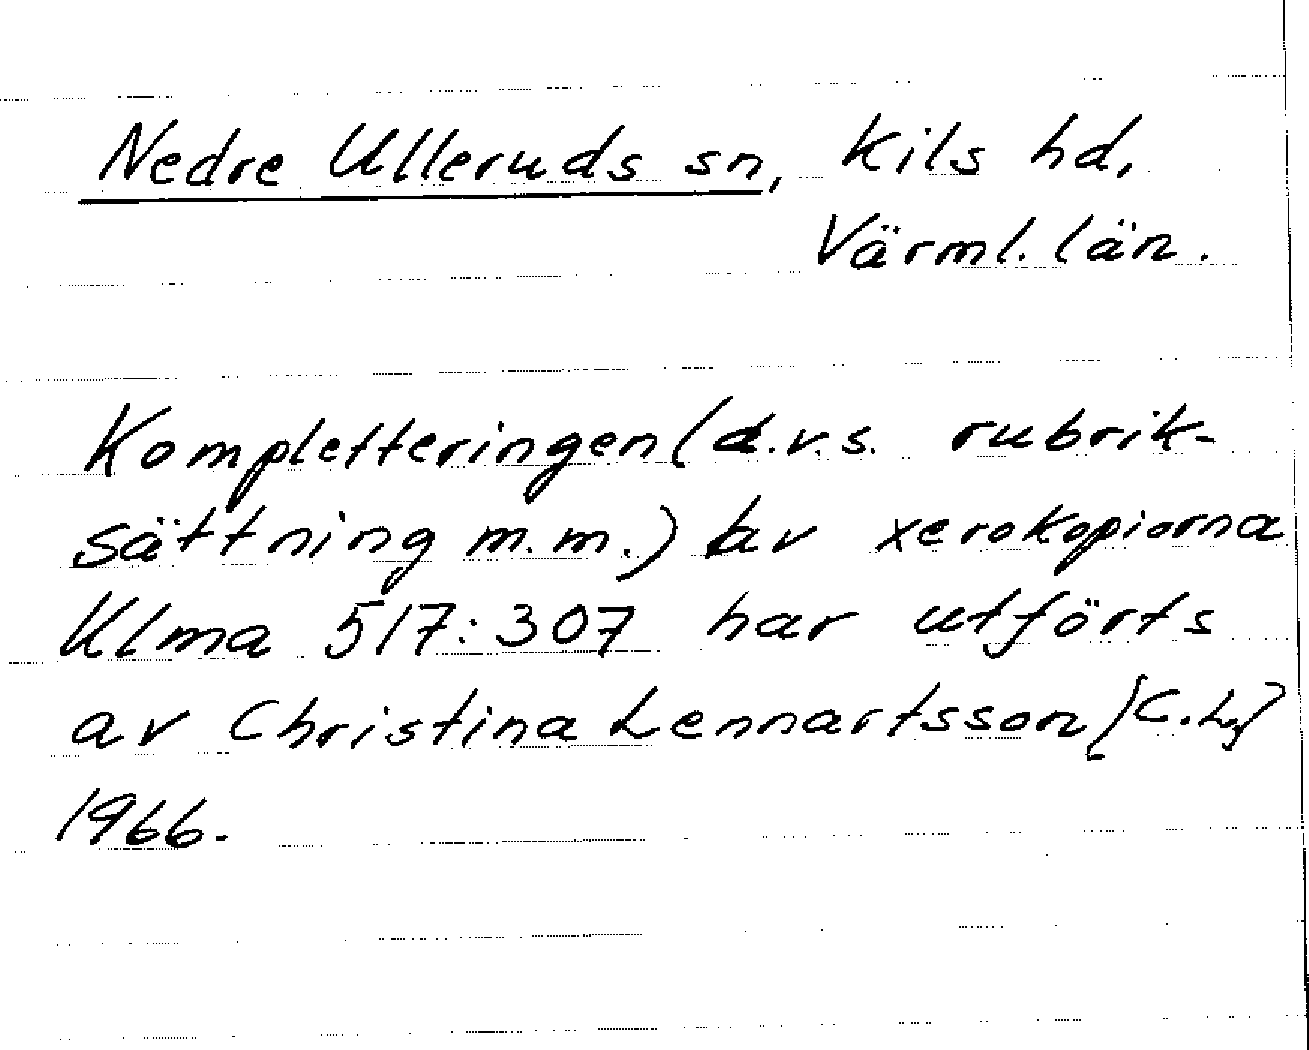 Nedre Ulleruds sn, Kils hd,
Värml. län.
Kompletteringen (d.v.s. rubrik-
sättning m.m.) av xerokopiorna
Klma 517:307 har utförts
av Christina Lennartsson [C.L.]
1966.